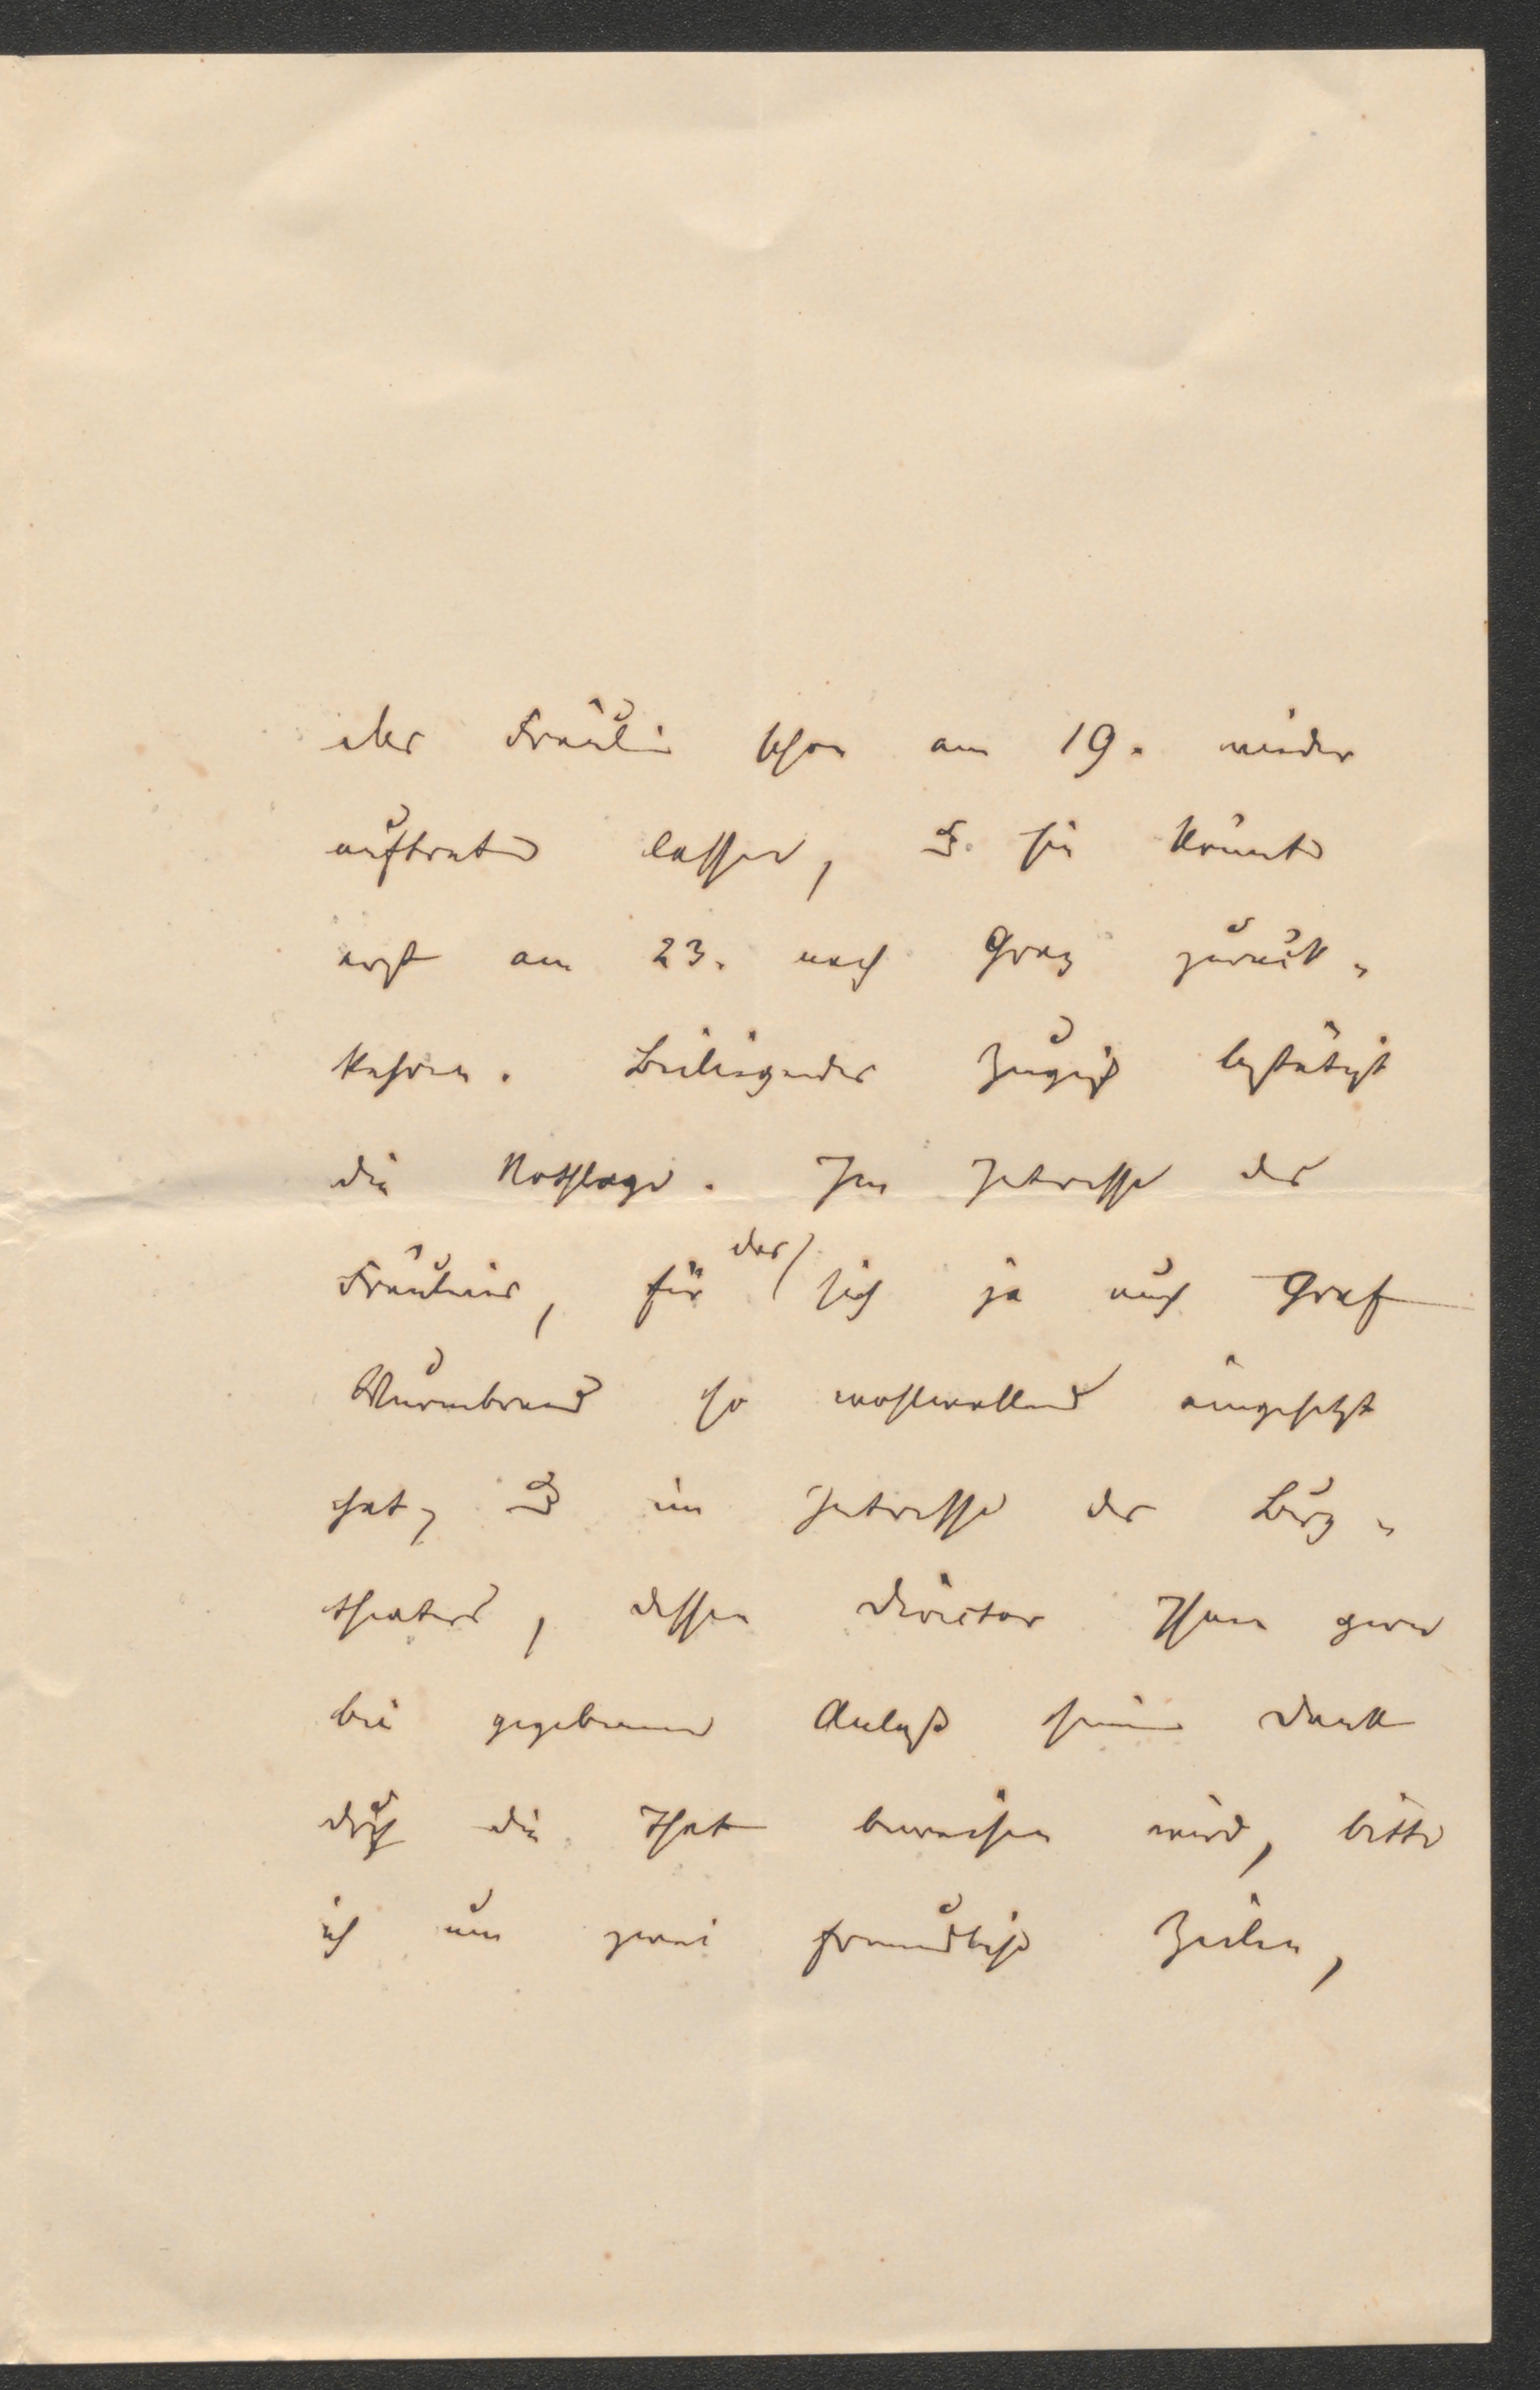 das Fräulein schon am 19. wieder
auftreten lassen, u. sie könnte
erst am 23. nach Graz zurück-
kehren. Beiliegendes Zeugniß bestätigt
die Nothlage. Im Interesse des
Fräuleins, für das sich ja auch Graf
Wurmbrand so wohlwollend eingesetzt
hat, und im Interesse des Burg-
theaters, dessen Director Ihnen gerne
bei gegebenem Anlaß seinen Dank
durch die That beweisen wird, bitte
ich um zwei freundliche Zeilen,